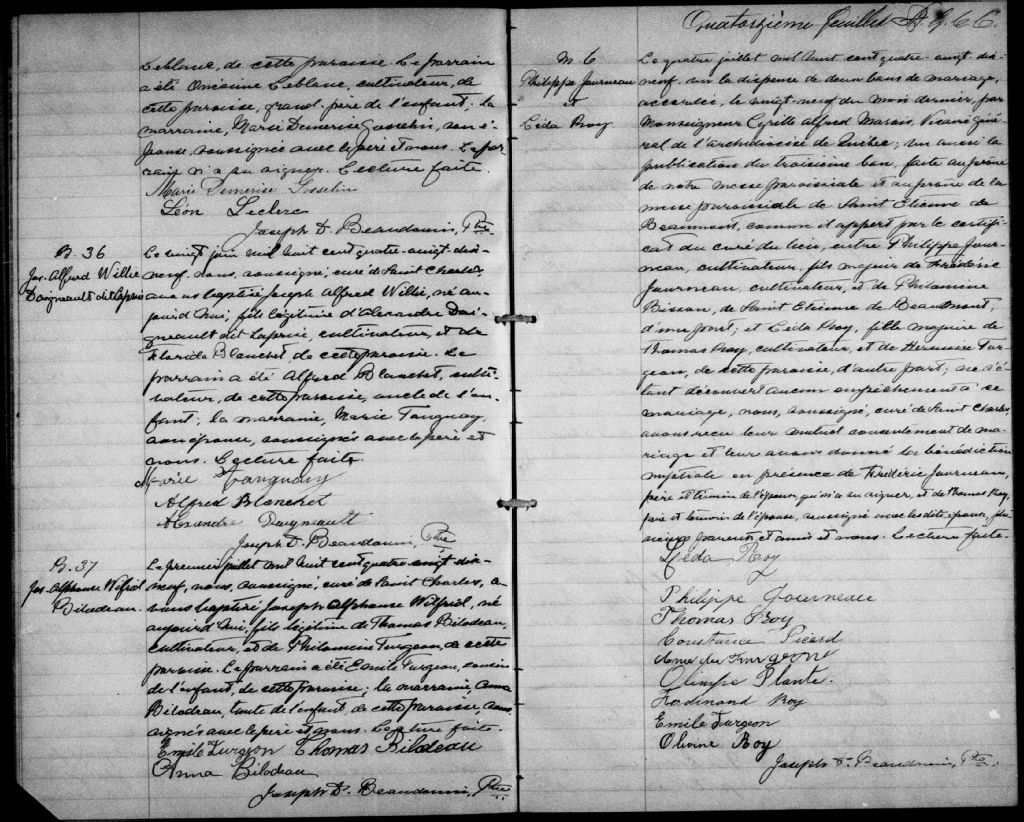 Leblanc, de cette paroisse. Le parrain
a été Onésime Leblanc, cultivateur, de
cette paroisse, grand-père de l'enfant; la
marraine, Marie Demerise Gosselin, son é-
pouse, soussignée avec le père et nous. Le par-
rain n'a su signer. Lecture faite.
Marie Demerise Gosselin
Léon Leclerc
Joseph D. Beaudouin, Ptre
B. 36
Jos. Alfred Willie
Daigneault dit Laprise
Le vingt juin mil huit cent quatre-vingt-dix-
neuf, nous, soussigné, curé de Saint Charles,
avons baptisé Joseph Alfred Willie, né au-
jourd'hui, fils légitime d'Alexandre Dai-
gneault dit Laprise, cultivateur, et de
Florida Blanchet, de cette paroisse. Le
parrain a été Alfred Blanchet, culti-
vateur, de cette paroisse, oncle de l'en-
fant; la marraine, Marie Tanguay,
son épouse, soussignés avec le père et
nous. Lecture faite
Marie Tanguay
Alfred Blanchet
Alexandre Daigneault
Joseph D. Beaudouin, Ptre
B. 37
Jos. Alphonse Wilfrid
Bilodeau.
Le premier juillet mil huit cent quatre-vingt-dix-
neuf, nous, soussigné, curé de Saint Charles, a-
vons baptisé Joseph Alphonse Wilfrid, né
aujourd'hui, fils légitime de Thomas Bilodeau,
cultivateur, et de Philomène Turgeon, de cette
paroisse. Le parrain a été Emile Turgeon, cousin
de l'enfant, de cette paroisse; la marraine, Anna
Bilodeau, tante de l'enfant, de cette paroisse, sous-
signés avec le père et nous. Lecture faite.
Emile Turgeon Thomas Bilodeau
Anna Bilodeau
Joseph D. Beaudouin, Ptre
Quatorzième feuillet
M. 6
Philippe Fourneau
&
Léda Roy
Le quatre juillet mil huit cent quatre-vingt-dix-
neuf, vu la dispense de deux bans de mariage,
accordée, le vingt-neuf du mois dernier, par
Monseigneur Cyrille Alfred Marois, Vicaire géné-
ral de l'archidiocèse de Québec; vu aussi la
publication du troisième ban, faite au prône
de notre messe paroissiale et au prône de la
messe paroissiale de Saint Etienne de
Beaumont, comme il appert par le certifi-
cat du curé du lieu, entre Philippe Four-
neau, cultivateur, fils majeur de Frédéric
Fourneau, cultivateur, et de Philomène
Bisson, de Saint Etienne de Beaumont,
d'une part; et Léda Roy, fille majeure de
Thomas Roy, cultivateur, et de Hermine Tur-
geon, de cette paroisse, d'autre part; ne s'é-
tant découvert aucun empêchement à ce
mariage, nous, soussigné, curé de Saint Charles,
avons reçu leur mutuel consentement de ma-
riage et leur avons donné la bénédiction
nuptiale en présence de Frédéric Fourneau,
père et témoin de l'époux, qui n'a su signer, et de Thomas Roy,
père et témoin de l'épouse, soussigné avec les dits époux, plu-
sieurs parents et amis et nous. Lecture faite.
Léda Roy
Philippe Fourneau
Thomas Roy
Constance Picard
Turgeon
Olimpe Plante.
Ferdinand Roy
Emile Turgeon
Olivine Roy
Joseph D. Beaudouin, Ptre.